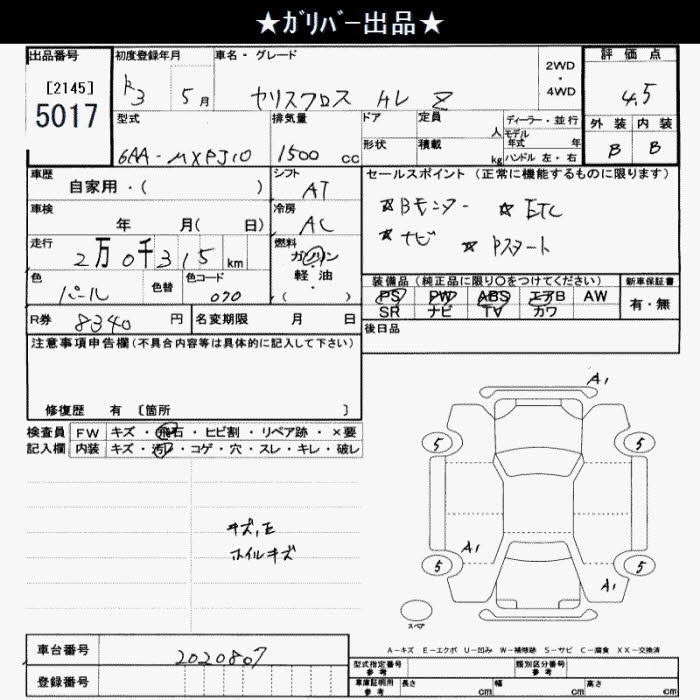 ★ｶﾞﾘﾊﾞｰ出品★
出品番号 初度登録年月 車名・グレード 評価点
[2145]
5017
R3 5月 ヤリスクロス HV Z
2WD
・
4WD
4.5
型式 排気量 ドア 定員 人 ディーラー・並行 外装 内装
モデル
年式 年
6AA-MXPJ10 1500 cc 形状 積載 kg ハンドル 左・右 B B
車歴 シフト セールスポイント (正常に機能するものに限ります)
自家用・( ) AT
☆Bモニター ☆ETC
車検 冷房
年 月( 日) AC
☆ナビ ☆Pスタート
走行 燃料
2万0千315km ガソリン
・
軽油
( )
色 色替 色コード
パール 070
装備品 (純正品に限り○をつけてください) 新車保証書
PS PW ABS エアB AW 有・無
SR ナビ TV カワ
R券 8340円 名変期限 月 日
後日品
注意事項申告欄(不具合内容等は具体的に記入して下さい)
修復歴 有 [箇所 ]
検査員 FW キズ・飛石・ヒビ割・リペア跡・×要
記入欄 内装 キズ・汚レ・コゲ・穴・スレ・キレ・破レ
キズ,E
ホイルキズ
A1
5 5
A1
5 5
A1
スペア
A-キズ E-エクボ U-凹み W-補修跡 S-サビ C-腐食 XX-交換済
車台番号 2020807
型式指定番号
参考
類別区分番号
参考
登録番号
車庫証明用
参考
長さ cm 幅 cm 高さ cm